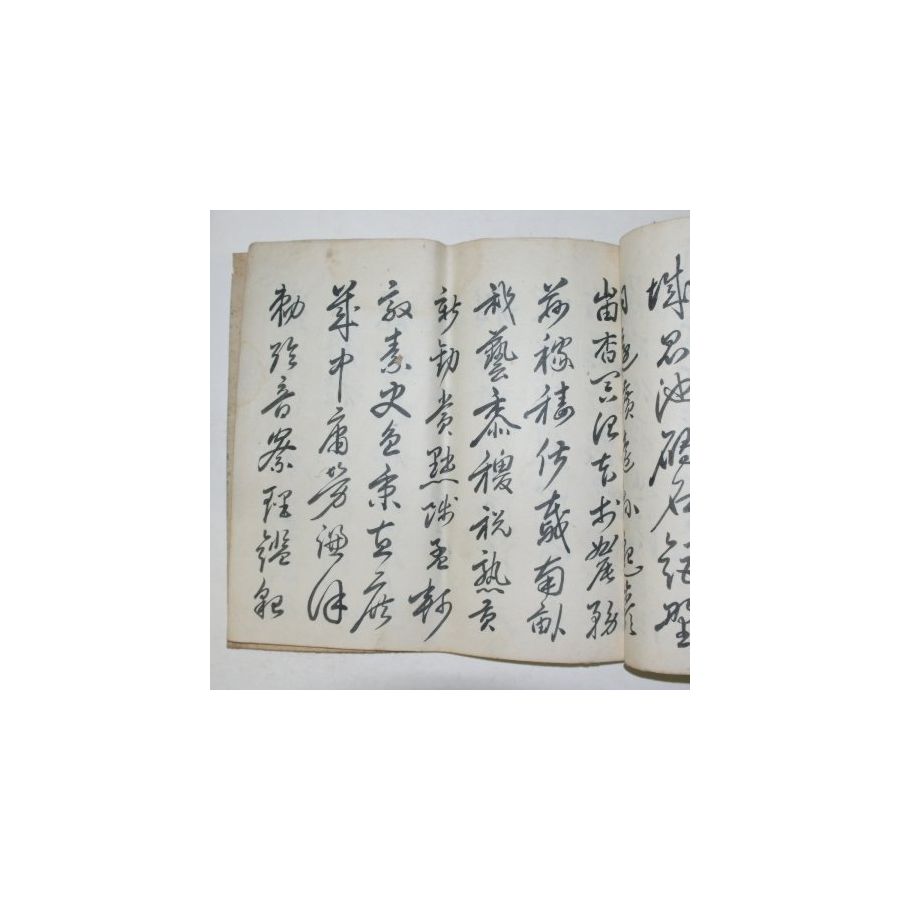 城昆池碣石鉅野
洞庭曠遠綿邈巖
岫杳冥治本於農務
茲稼穡俶載南畝
我藝黍稷稅熟貢
新勸賞黜陟孟軻
敦素史魚秉直庶
幾中庸勞謙謹
勅聆音察理鑑貌